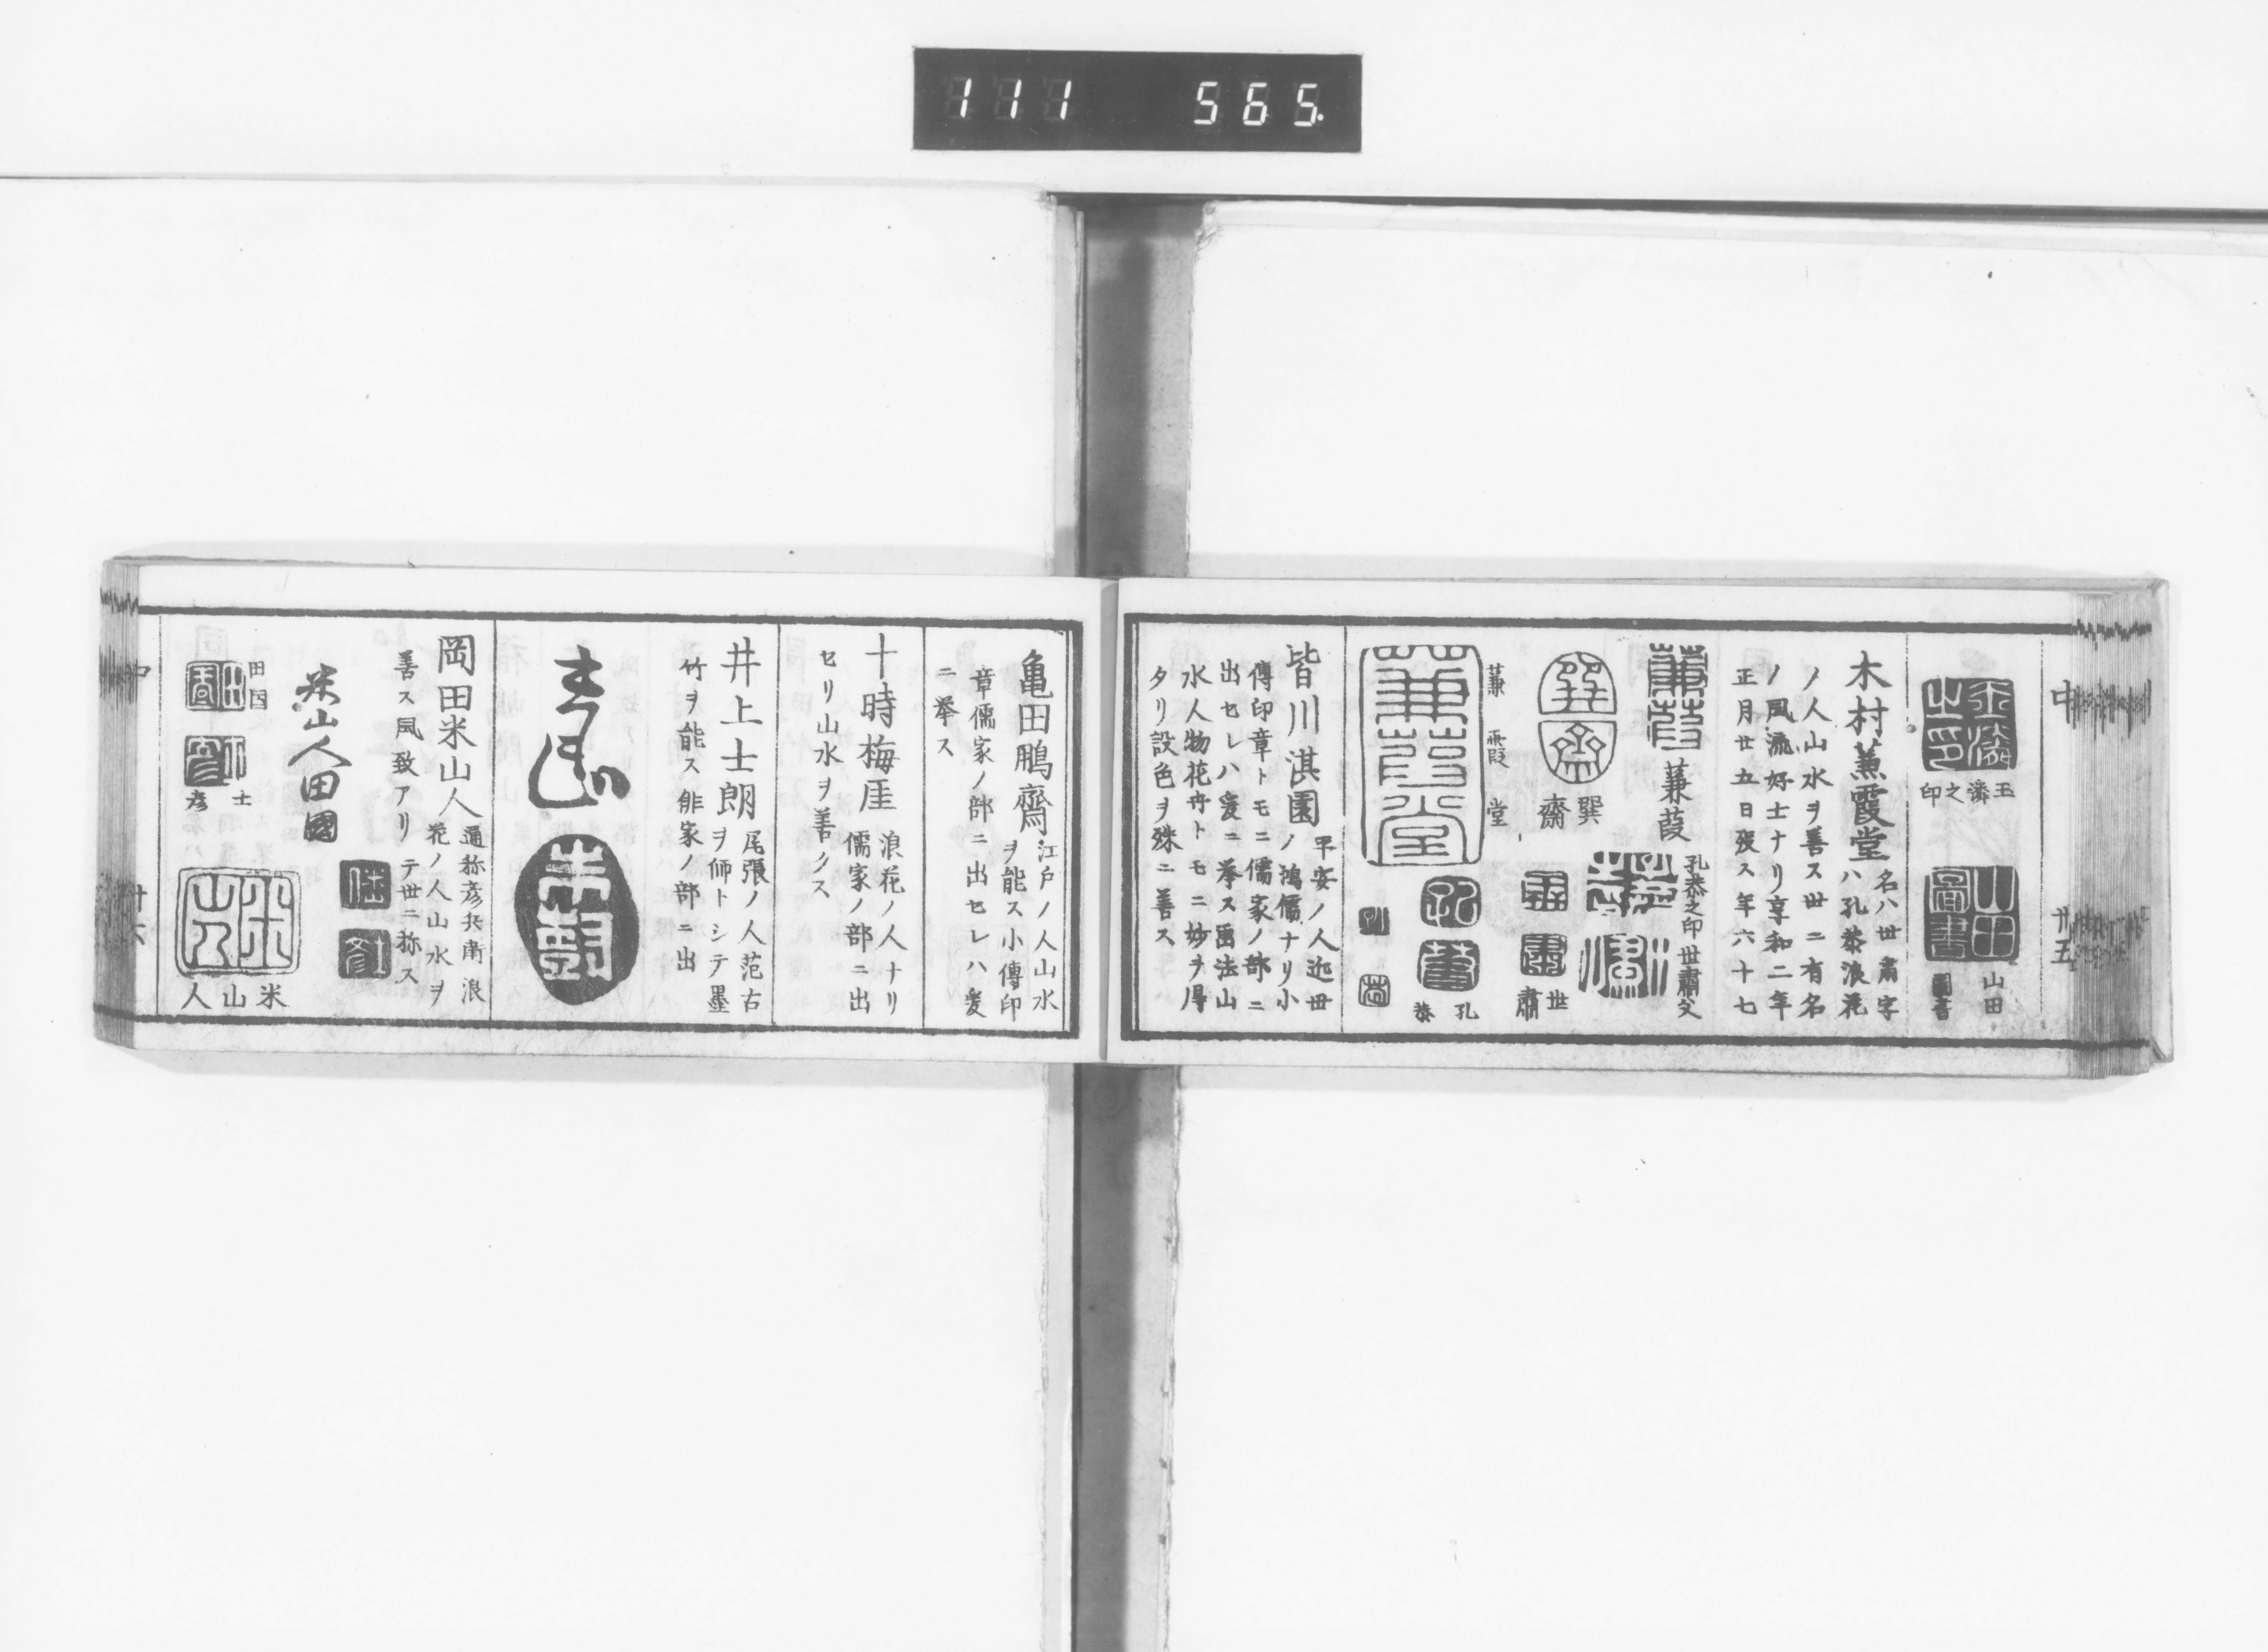 111 565.
中
廿五
玉潾之印
山田
圖書
木村蒹霞堂
名ハ世肅字
ハ孔恭浪花
ノ人山水ヲ善ス世ニ有名
ノ風流好士ナリ享和二年
正月廿五日歿ス年六十七
蒹葭
孔恭之印
世肅父
巽齋
世肅
蒹霞堂
孔恭
皆川淇園
平安ノ人近世
ノ鴻儒ナリ小
傳印章トモニ儒家ノ部ニ
出セレハ爰ニ挙ス畫法山
水人物花卉トモニ妙ヲ得
タリ設色ヲ殊ニ善ス
亀田鵬齋
江戸ノ人山水
ヲ能ス小傳印
章儒家ノ部ニ出セレハ爰
ニ挙ス
十時梅厓
浪花ノ人ナリ
儒家ノ部ニ出
セリ山水ヲ善クス
井上士朗
尾張ノ人范古
ヲ師トシテ墨
竹ヲ能ス俳家ノ部ニ出
岡田米山人
通称彦兵衛浪
花ノ人山水ヲ
善ス風致アリテ世ニ称ス
米山人田國
田国
士彦
米山人
中
廿六